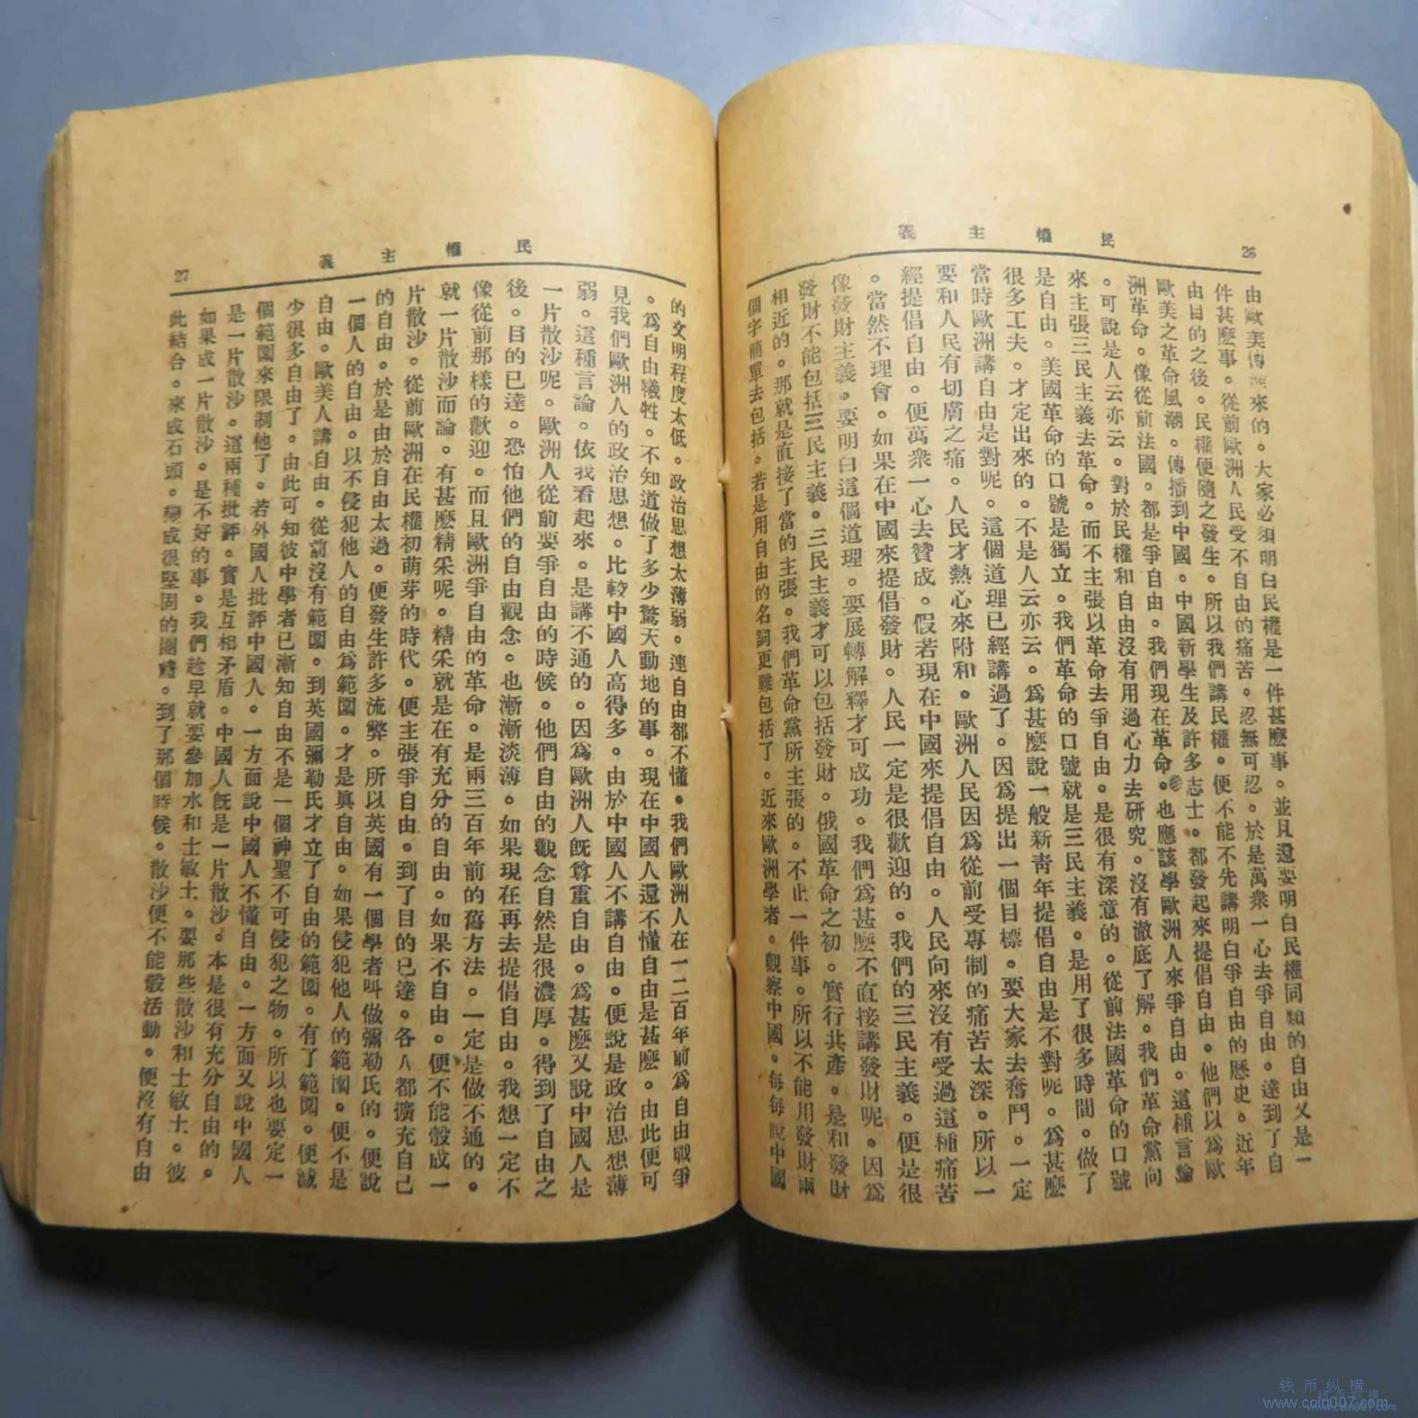 26
民權主義
由歐美傳進來的。大家必須明白民權是一件甚麽事。並且還要明白民權同類的自由又是一
件甚麽事。從前歐洲人民受不自由的痛苦。忍無可忍。於是萬衆一心去爭自由。達到了自
由目的之後。民權便隨之發生。所以我們講民權。便不能不先講明白爭自由的歷史。近年
歐美之革命風潮。傳播到中國。中國新學生及許多志士。都發起來提倡自由。他們以爲歐
洲革命。像從前法國。都是爭自由。我們現在革命。也應該學歐洲人來爭自由。這種言論
。可說是人云亦云。對於民權和自由沒有用過心力去研究。沒有澈底了解。我們革命黨向
來主張三民主義去革命。而不主張以革命去爭自由。是很有深意的。從前法國革命的口號
是自由。美國革命的口號是獨立。我們革命的口號就是三民主義。是用了很多時間。做了
很多工夫。才定出來的。不是人云亦云。爲甚麽說一般新青年提倡自由是不對呢。爲甚麽
當時歐洲講自由是對呢。這個道理已經講過了。因爲提出一個目標。要大家去奮鬥。一定
要和人民有切膚之痛。人民才熱心來附和。歐洲人民因爲從前受專制的痛苦太深。所以一
經提倡自由。便萬衆一心去贊成。假若現在中國來提倡自由。人民向來沒有受過這種痛苦
。當然不理會。如果在中國來提倡發財。人民一定是很歡迎的。我們的三民主義。便是很
像發財主義。要明白這個道理。要展轉解釋才可成功。我們爲甚麽不直接講發財呢。因爲
發財不能包括三民主義。三民主義才可以包括發財。俄國革命之初。實行共產。是和發財
相近的。那就是直接了當的主張。我們革命黨所主張的。不止一件事。所以不能用發財兩
個字簡單去包括。若是用自由的名詞更難包括了。近來歐洲學者。觀察中國。每每說中國
民權主義
27
的文明程度太低。政治思想太薄弱。連自由都不懂。我們歐洲人在一二百年前爲自由戰爭
。爲自由犧牲。不知道做了多少驚天動地的事。現在中國人還不懂自由是甚麽。由此便可
見我們歐洲人的政治思想。比較中國人高得多。由於中國人不講自由。便說是政治思想薄
弱。這種言論。依我看起來。是講不通的。因爲歐洲人既尊重自由。爲甚麽又說中國人是
一片散沙呢。歐洲人從前要爭自由的時候。他們自由的觀念自然是很濃厚。得到了自由之
後。目的已達。恐怕他們的自由觀念。也漸漸淡薄。如果現在再去提倡自由。我想一定不
像從前那樣的歡迎。而且歐洲爭自由的革命。是兩三百年前的舊方法。一定是做不通的。
就一片散沙而論。有甚麽精采呢。精采就是在有充分的自由。如果不自由。便不能彀成一
片散沙。從前歐洲在民權初萌芽的時代。便主張爭自由。到了目的已達。各人都擴充自己
的自由。於是由於自由太過。便發生許多流弊。所以英國有一個學者叫做彌勒氏的。便說
一個人的自由。以不侵犯他人的自由爲範圍。才是眞自由。如果侵犯他人的範圍。便不是
自由。歐美人講自由。從前沒有範圍。到英國彌勒氏才立了自由的範圍。有了範圍。便減
少很多自由了。由此可知彼中學者已漸知自由不是一個神聖不可侵犯之物。所以也要定一
個範圍來限制他了。若外國人批評中國人。一方面說中國人不懂自由。一方面又說中國人
是一片散沙。這兩種批評。實是互相矛盾。中國人既是一片散沙。本是很有充分自由的。
如果成一片散沙。是不好的事。我們趁早就要參加水和士敏土。要那些散沙和士敏土。彼
此結合。來成石頭。變成很堅固的團體。到了那個時候。散沙便不能彀活動。便沒有自由
钱币纵横
www.coin007.com